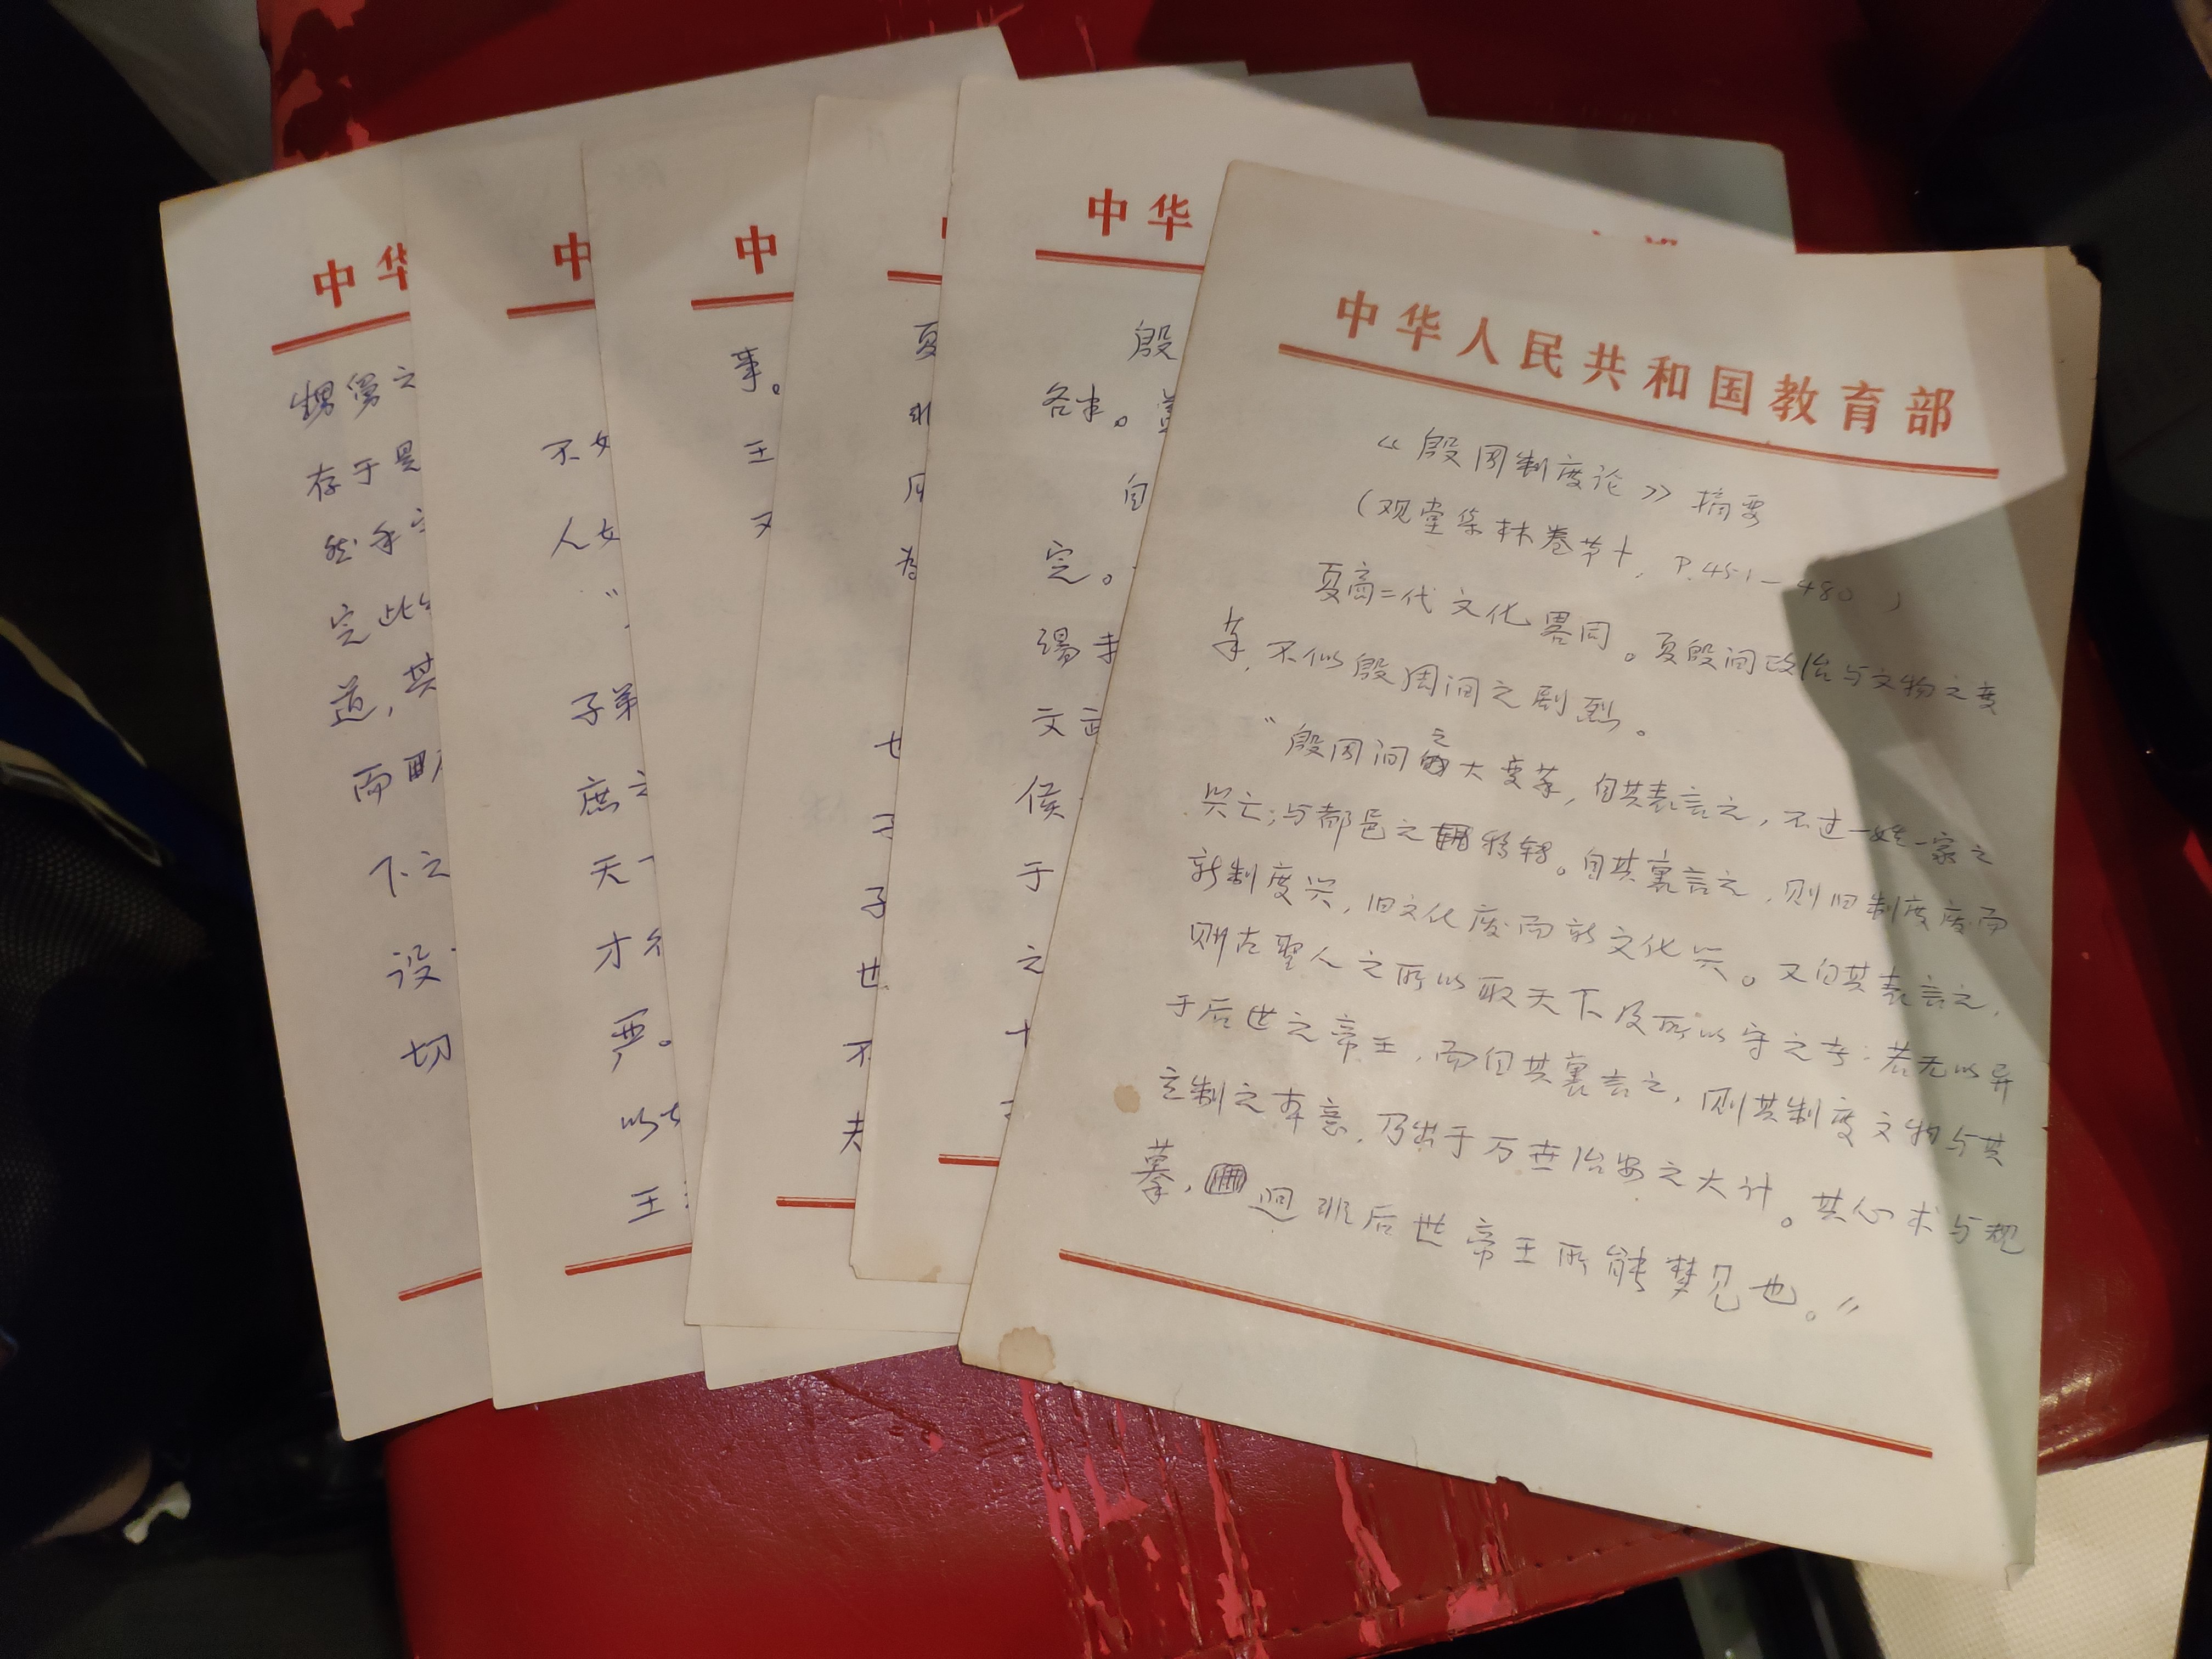 中华人民共和国教育部
《殷周制度论》摘要
(观堂集林卷第十, P.451—480)
夏商二代文化畧同。夏殷间政治与文物之变
革,不似殷周间之剧烈。
"殷周间之大变革,自其表言之,不过一姓一家之
兴亡;与都邑之移转。自其裏言之,则旧制度废而
新制度兴,旧文化废而新文化兴。又自其表言之,
则古聖人之所以取天下及所以守之者;若无以异
于后世之帝王,而自其裏言之,则其制度文物与其
立制之本意,乃出于万世治安之大计。其心术与规
摹,迥非后世帝王所能梦见也。"
中华
殷
各半。
自
完。
文武
侯
于
之
十
夏
非
周
为
也
子
世
不
夫
中
事。
王
又
中
不
人
子弟
庶之
天下
才
严。
以
王
中华
甥舅之
存于是
然
完此
道,其
而
下之
设
切